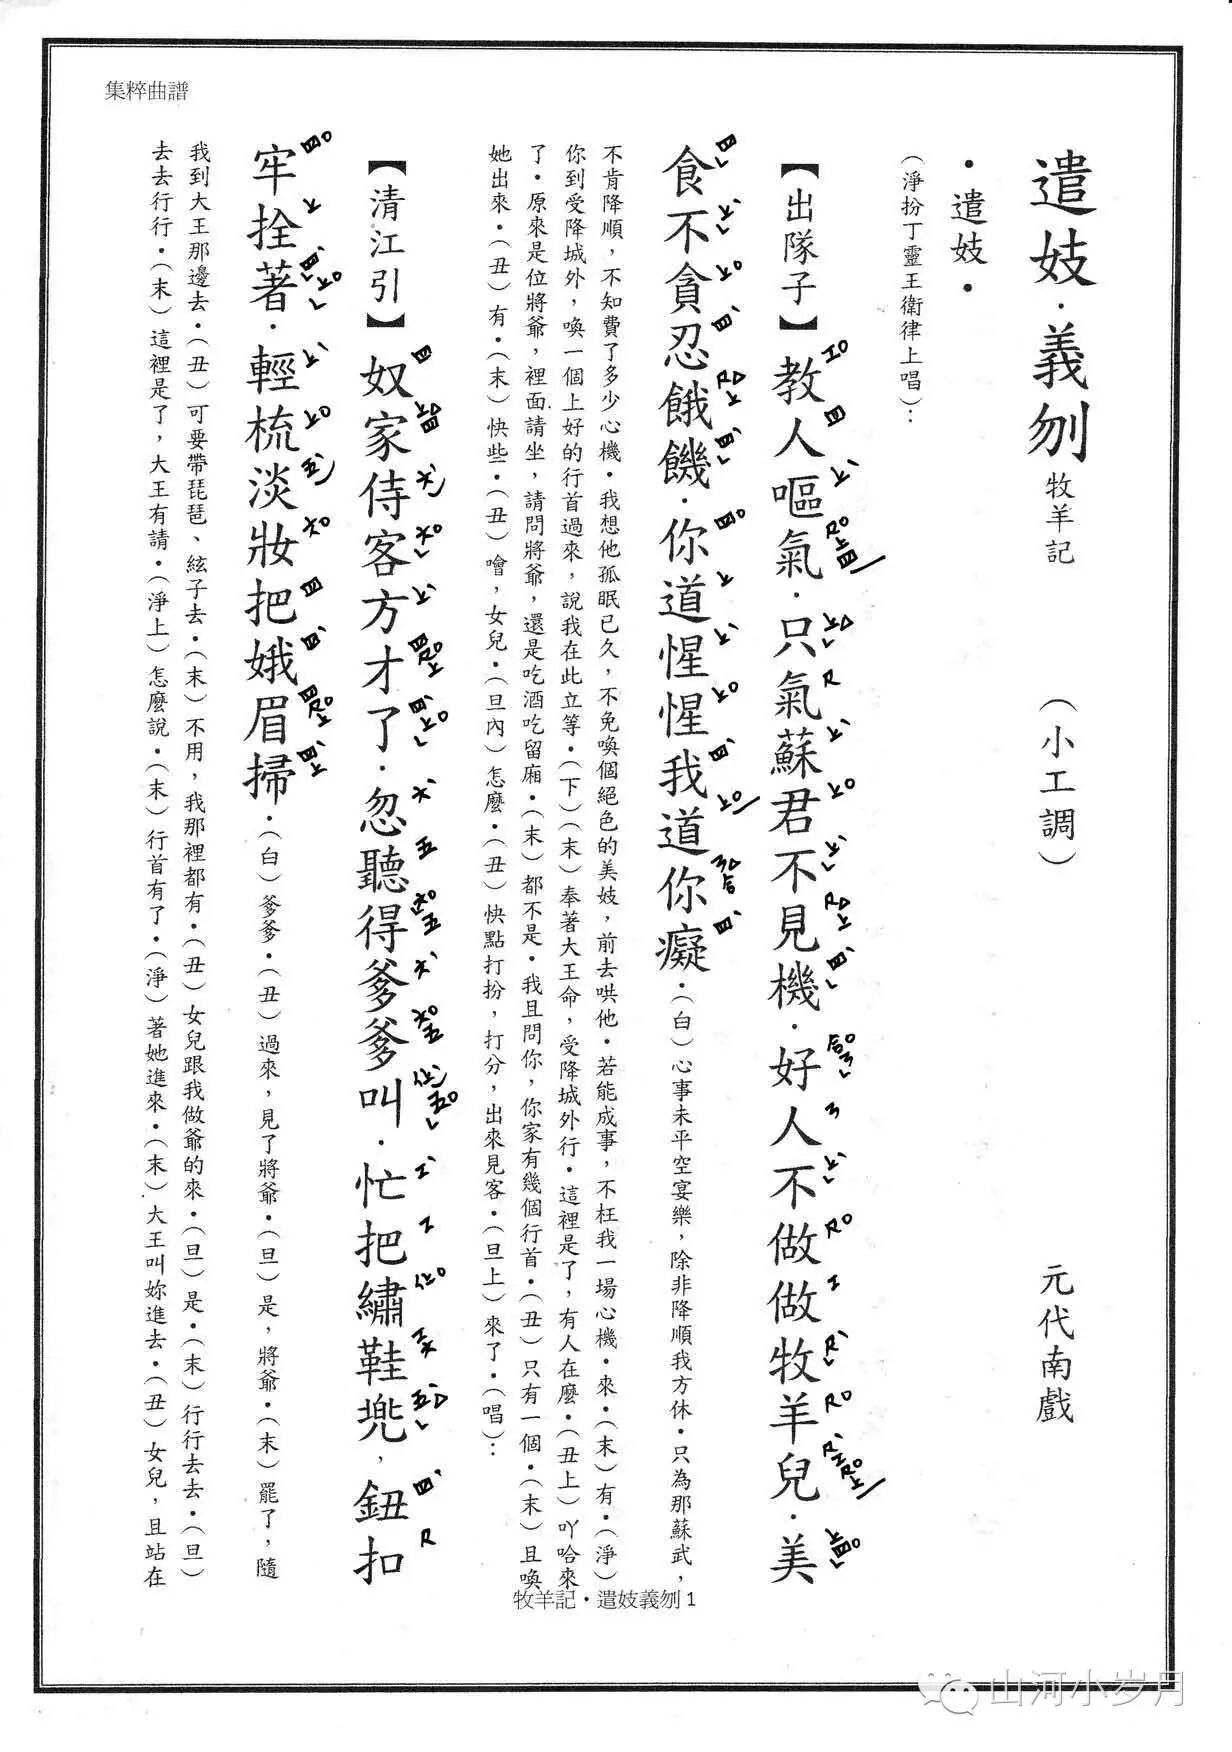 集粹曲譜
遣妓・義刎 牧羊記 （小工調） 元代南戲
・遣妓・
（淨扮丁靈王衛律上唱）：
【出隊子】教人嘔氣・只氣蘇君不見機・好人不做做牧羊兒・美
食不貪忍餓饑・你道惺惺我道你癡・（白）心事未平空宴樂，除非降順我方休・只為那蘇武，
不肯降順，不知費了多少心機・我想他孤眠已久，不免喚個絕色的美妓，前去哄他・若能成事，不枉我一場心機・來・（末）有・（淨）
你到受降城外，喚一個上好的行首過來，說我在此立等・（下）（末）奉著大王命，受降城外行・這裡是了，有人在麼・（丑上）吖哈來
了・原來是位將爺，裡面請坐，請問將爺，還是吃酒吃留廂・（末）都不是・我且問你，你家有幾個行首・（丑）只有一個・（末）且喚
她出來・（丑）有・（末）快些・（丑）噲，女兒・（旦內）怎麼・（丑）快點打扮，打分，出來見客・（旦上）來了・（唱）：
【清江引】奴家侍客方才了・忽聽得爹爹叫・忙把繡鞋兜，鈕扣
牢拴著・輕梳淡妝把娥眉掃・（白）爹爹・（丑）過來，見了將爺・（旦）是，將爺・（末）罷了，隨
我到大王那邊去・（丑）可要帶琵琶、絃子去・（末）不用，我那裡都有・（丑）女兒跟我做爺的來・（旦）是・（末）行行去去・（旦）
去去行行・（末）這裡是了，大王有請・（淨上）怎麼說・（末）行首有了・（淨）著她進來・（末）大王叫妳進去・（丑）女兒，且站在
牧羊記・遣妓義刎 1
山河小岁月